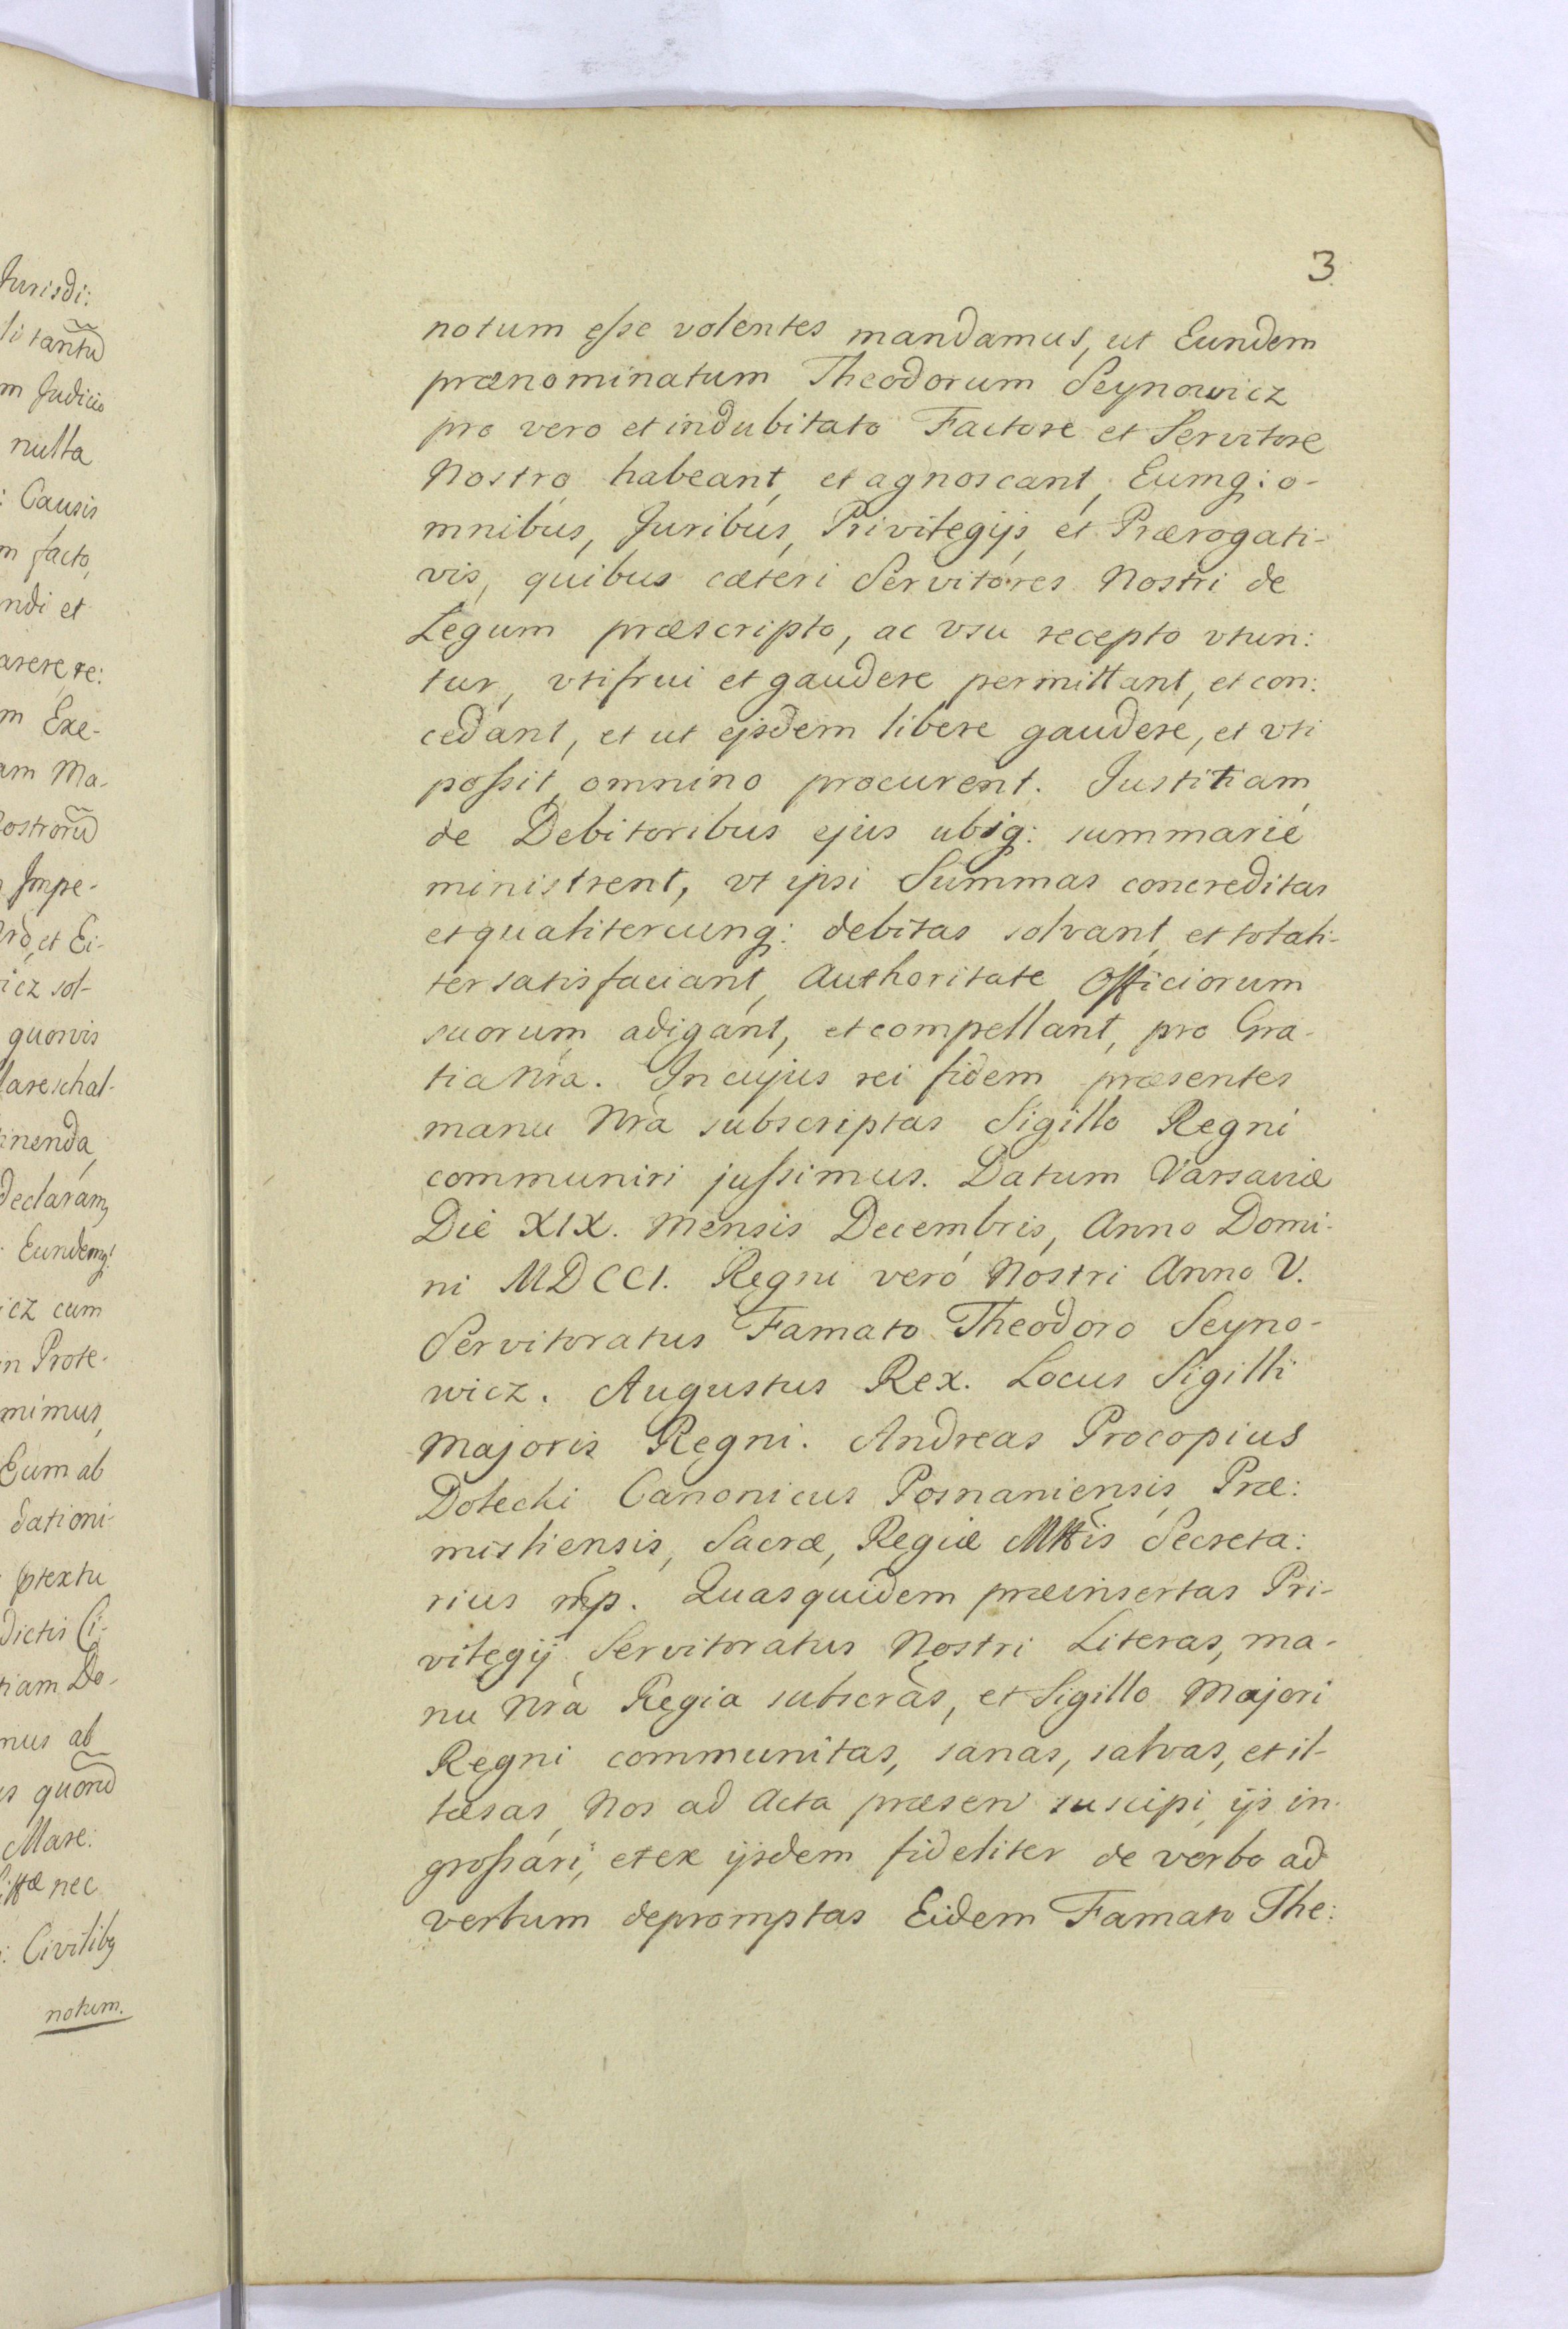 Jurisdi:
li tantũ
m Judicio
nulla
: Causis
m facto,
ndi et
arere re:
m Exe-
am Ma-
ostrorũ
Impe-
et Ei-
icz sol-
quorvis
lareschal-
inenda,
declaram9
Eundemq:
icz cum
in Prote-
mimus,
Eum ab
dationi-
ptextu
dictis Ci-
tiam Do-
mus ab
s quorũ
Mare:
nec
: Civilib9
notum.
3.
notum esse volentes mandamus, ut Eundem
prænominatum Theodorum Seynowicz
pro vero et indubitato Factore et Servitore
Nostro habeant, et agnoscant, Eumq: o-
mnibus, Juribus, Privilegijs, et Prærogati-
vis, quibus cæteri Servitores Nostri de
Legum præscripto, ac vsu recepto vtun:
tur, vtifrui et gaudere permittant, et con:
cedant, et ut ejsdem libere gaudere, et vti
possit, omnino procurent. Justitiam
de Debitoribus ejus ubiq: summarie
ministrent, vt ipsi Summas concreditas
et qualitercunq: debitas solvant, et totali-
ter satisfaciant, Authoritate Officiorum
suorum adigant, et compellant, pro Gra-
tia Nrã. In cujus rei fidem præsentes
manu Nrã subscriptas Sigillo Regni
communiri jussimus. Datum Varsaviæ
Die XIX. Mensis Decembris, Anno Domi-
ni MDCCI. Regni veró Nostri Anno V.
Servitoratus Famato Theodoro Seyno-
wicz. Augustus Rex. Locus Sigilli
Majoris Regni. Andreas Procopius
Dolechi Canonicus Posnaniensis, Præ:
misliensis, Sacræ, Regiæ Mttis Secreta:
rius mp. Quasquidem præinsertas Pri-
vilegij Servitoratus Nostri Literas, ma-
nu Nrã Regia subscrãs, et Sigillo Majori
Regni communitas, sanas, salvas, et il-
læsas, Nos ad Acta præsen suscipi, ijs in-
grossari, et ex ijsdem fideliter de verbo ad
verbum depromptas Eidem Famato The: